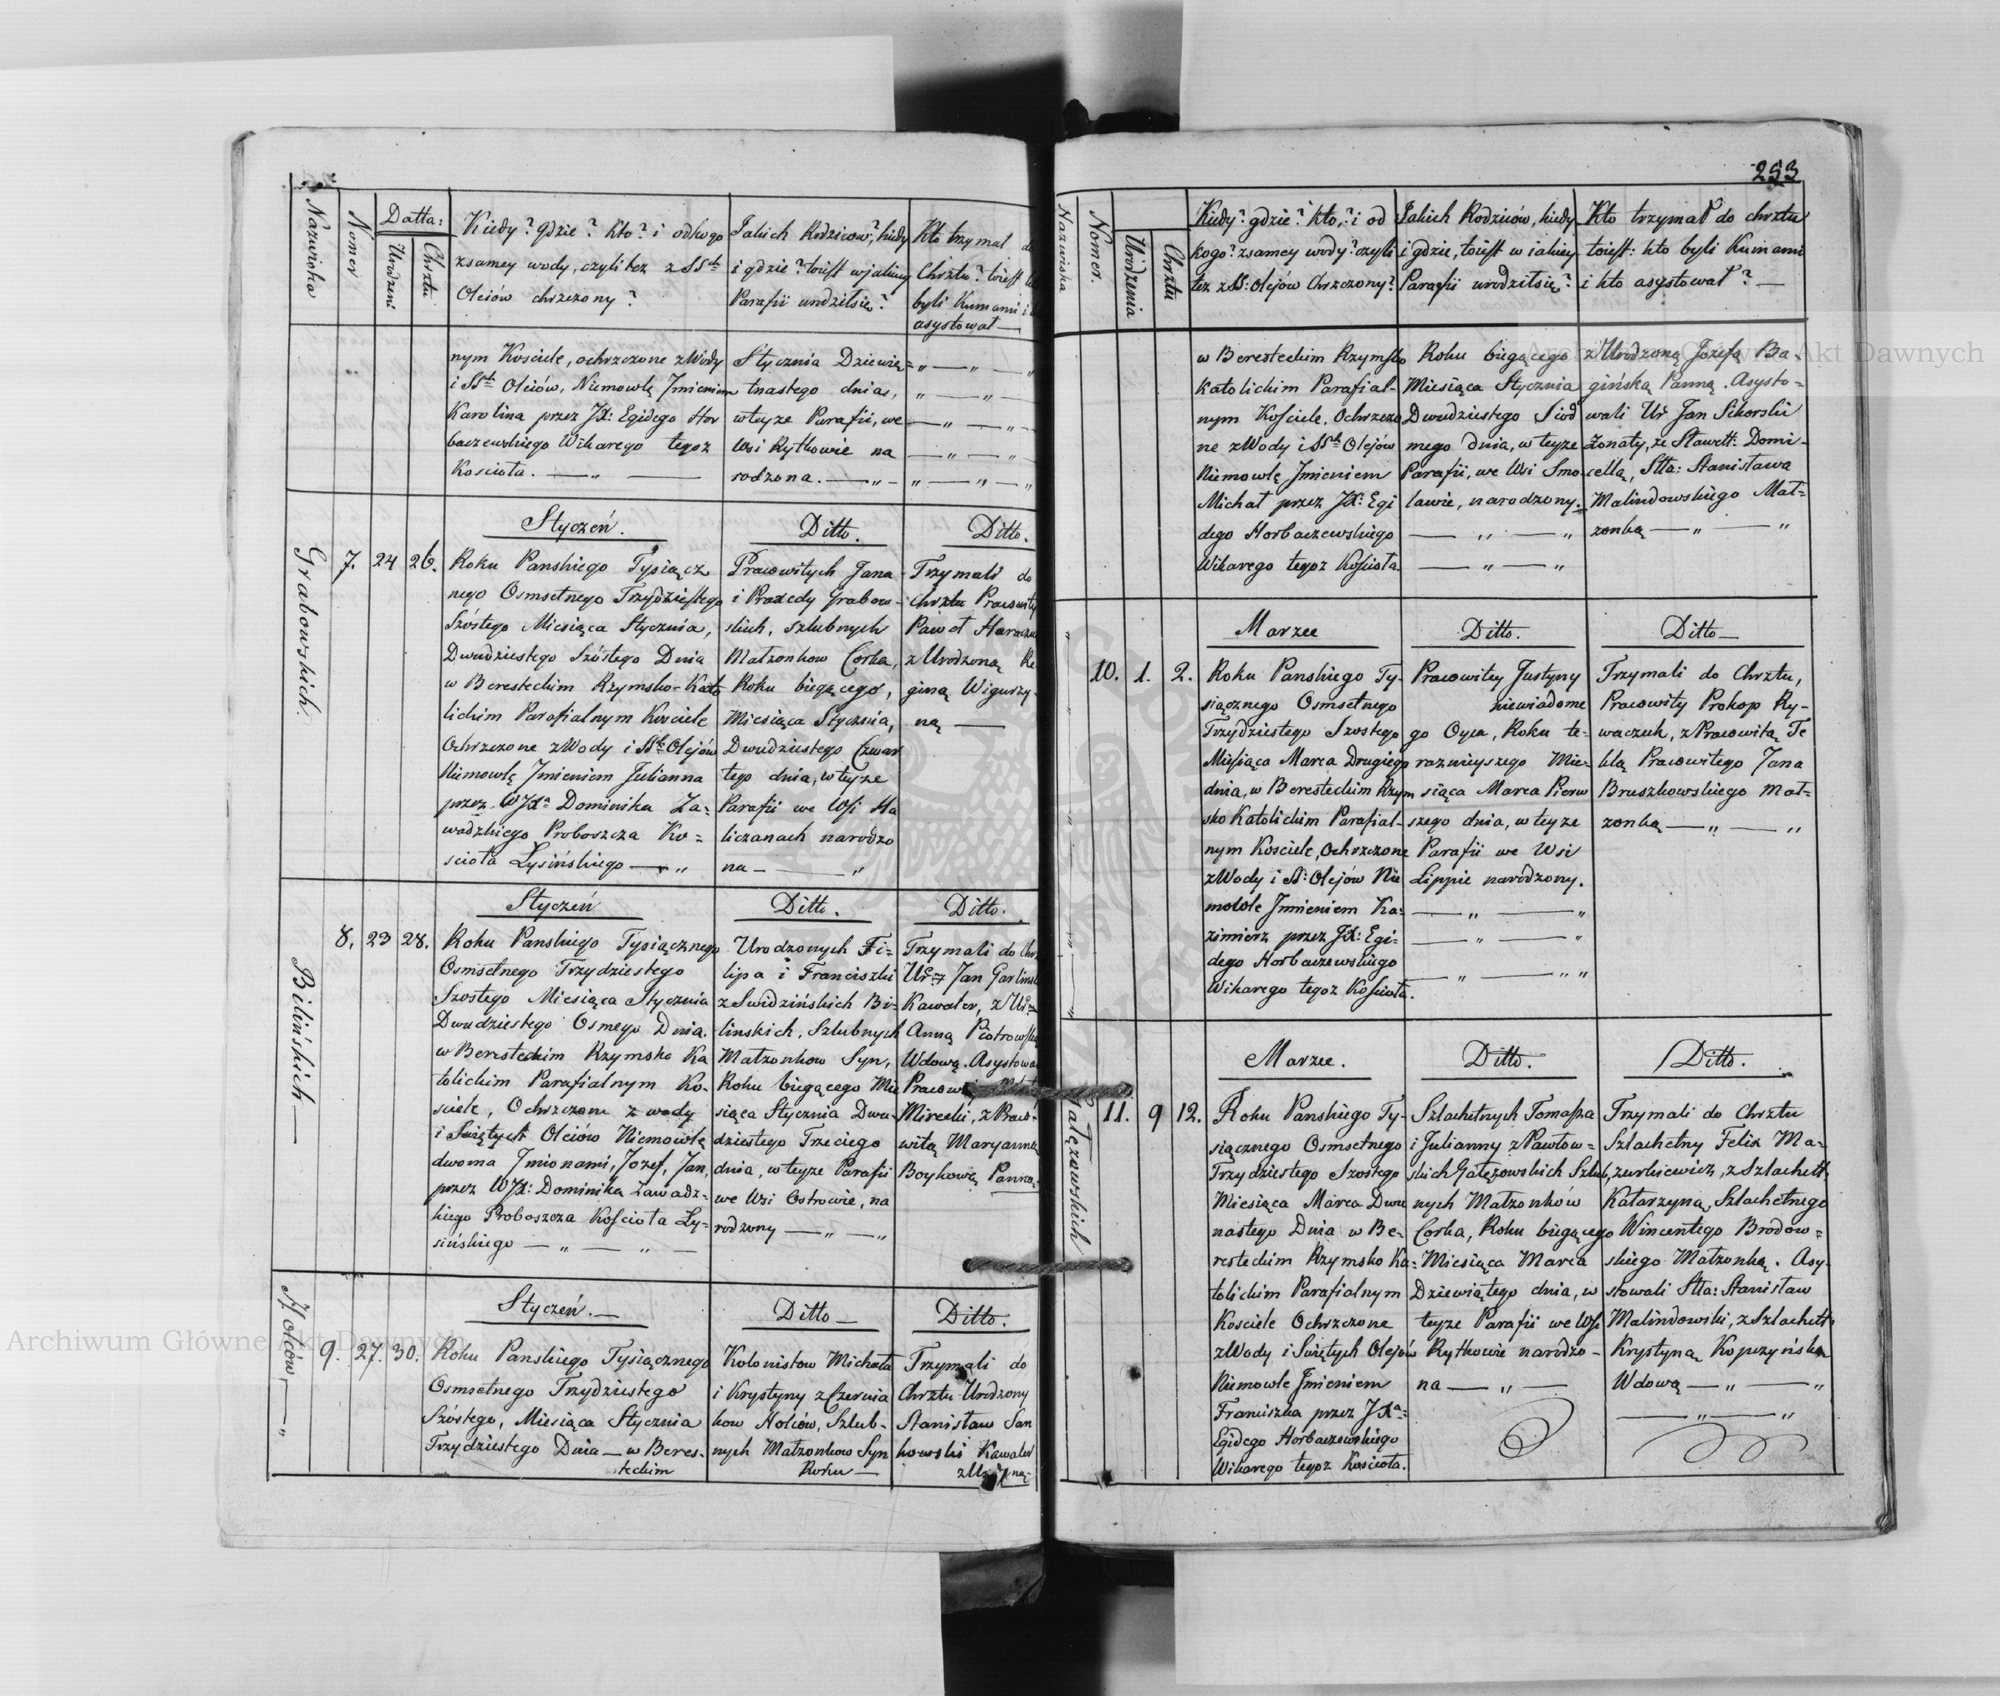 Nazwiska
Nomer
Datta:
Urodzeni
Chrztu
Kiedy? gdzie? kto? i od kogo
z samey wody, czyli tez z SSch
Oleiów chrzczony?
Jakich Rodzicow, kiedy
i gdzie? toiest w jakiey
Parafii urodziłsię?
Kto trzymał do
Chrztu? toiest
byli Kumami i
asystował
nym Kosciele, ochrzczone z Wody
i SSch Oleiów, Niemowlę Jmieniem
Karolina przez JX: Egidego Hor
baczewskiego Wikarego tegoz
Kosciola.
Stycznia Dziewię=
tnastego dnia,
w teyze Parafii, we
Wsi Rytkowie na
rodzona.
Grabowskich.
7. 24 26.
Styczeń.
Roku Panskiego Tysiącz
nego Osmsetnego Trzydziestego
Szóstego Miesiąca Stycznia,
Dwudziestego Szóstego Dnia
w Beresteckim Rzymsko-Kato
lickim Parafialnym Kosciele
Ochrzczone z Wody i SSch Olejów
Niemowlę Jmieniem Julianna
przez WJXa Dominika Za=
wadzkiego Proboszcza Ko=
sciola Łysińskiego
Ditto.
Pracowitych Jana
i Praxedy Grabow-
skich, szlubnych
Małzonkow Corka,
Roku biegącego,
Miesiąca Stycznia,
Dwudziestego Czwar
tego dnia, w teyze
Parafii we Wsi Ha
liczanach narodzo
na
Ditto.
Trzymali do
Chrztu Pracowity
Paweł
z Urodzoną Re
giną Wigurzy-
ną
Bilińskich
8. 23 28.
Styczeń
Roku Panskiego Tysiącznego
Osmsetnego Trzydziestego
Szostego Miesiąca Stycznia
Dwudziestego Osmego Dnia
w Beresteckim Rzymsko Ka
tolickim Parafialnym Ko-
sciele, Ochrzczone z wody
i Swiętych Oleiów Niemowlę
dwoma Jmionami, Jozef, Jan,
przez WJX: Dominika Zawadz-
kiego Proboszcza Kosciola Ły-
sińskiego
Ditto.
Urodzonych Fi-
lipa i Franciszki
z Swidzińskich Bi-
linskich, Szlubnych
Małzonkow Syn,
Roku biegącego Mie
siąca Stycznia Dwu-
dziestego Trzeciego
dnia, w teyze Parafii
we Wsi Ostrowie, na
rodzony
Ditto.
Trzymali do Chrz
Jan
Kawaler, z
Anną
Wdową. Asystowa
Mirecki, z Praco-
witą Maryanną
Boykową Panną.
Holców
9. 27. 30.
Styczeń.
Roku Panskiego Tysiącznego
Osmsetnego Trzydziestego
Szóstego, Miesiąca Stycznia
Trzydziestego Dnia w Beres-
teckim
Ditto
Kolonistow Michała
i Krystyny z Czernia
kow Holców, Szlub-
nych Małzonkow Syn
Roku
Ditto.
Trzymali do
Chrztu Urodzony
Stanisław San
kowski Kawaler
253
Nazwiska
Nomer.
Urodzenia
Chrztu
Kiedy? gdzie? kto,? i od
kogo? z samey wody? czyli
tez z SS: Olejów Chrzczony?
Jakich Rodziców, kiedy
i gdzie, toiest w iakiey
Parafii urodziłsię?
Kto trzymał do chrztu
toiest: kto byli Kumami
i kto asystował?
w Beresteckim Rzymsko
Katolickim Parafial-
nym Kościele, Ochrzczo
ne z Wody i SSch Olejów
Niemowlę Jmieniem
Michał przez JX: Egi
dego Horbaczewskiego
Wikarego tegoz Kościola
Roku biegącego
Miesiąca Stycznia
Dwudziestego Siod
mego dnia, w teyze
Parafii, we Wsi Smo
lawie, narodzony.
z Urodzoną Jozefą Ba-
gińską Panną. Asysto=
wali Ur Jan Sikorski
Zonaty, ze Sławett: Domi-
cellą, Sła: Stanisława
Malindowskiego Mał=
zonką
10. 1. 2.
Marzec
Roku Panskiego Ty-
siącznego Osmsetnego
Trzydziestego Szostego
Miesiąca Marca Drugiego
dnia, w Beresteckim Rzym
sko Katolickim Parafial-
nym Kosciele, Ochrzczone
z Wody i S: Olejów Nie
mowle Jmieniem Ka:
zimierz przez JX: Egi-
dego Horbaczewskiego
Wikarego tegoz Kosciola.
Ditto.
Pracowitey Justyny
niewiadome
go Oyca, Roku te-
raznieyszego Mie-
siąca Marca Pierw
szego dnia, w teyze
Parafii we Wsi
Lippie narodzony.
Ditto
Trzymali do Chrztu,
Pracowity Prokop Ry-
waczuk, z Pracowitą Te
klą Pracowitego Jana
Bruszkowskiego Mał-
zonką
Gałęzowskich
11. 9 12.
Marzec.
Roku Panskiego Ty-
siącznego Osmsetnego
Trzydziestego Szostego
Miesiąca Marca Dwu
nastego Dnia w Be-
resteckim Rzymsko Ka-
tolickim Parafialnym
Kosciele Ochrzczone
z Wody i Swiętych Olejów
Niemowle Jmieniem
Franciszka przez JXa:
Egidego Horbaczewskiego
Wikarego tegoz Kosciola.
Ditto.
Szlachetnych Tomasza
i Julianny z Pawłow=
skich Gałęzowskich Szlub,
nych Małzonków
Corka, Roku biegącego
Miesiąca Marca
Dziewiątego dnia, w
teyze Parafii we Wsi
Rytkowie narodzo-
na
Ditto.
Trzymali do Chrztu
Szlachetny Felix Ma-
zurkiewicz, z Szlachett.
Katarzyną, Szlachetnego
Wincentego Brodow=
skiego Małzonką. Asy-
stowali Sła: Stanisław
Malindowski, z Szlachett.
Krystyną Kopczyńską
Wdową
Archiwum Główne Akt Dawnych
Archiwum Główne Akt Dawnych